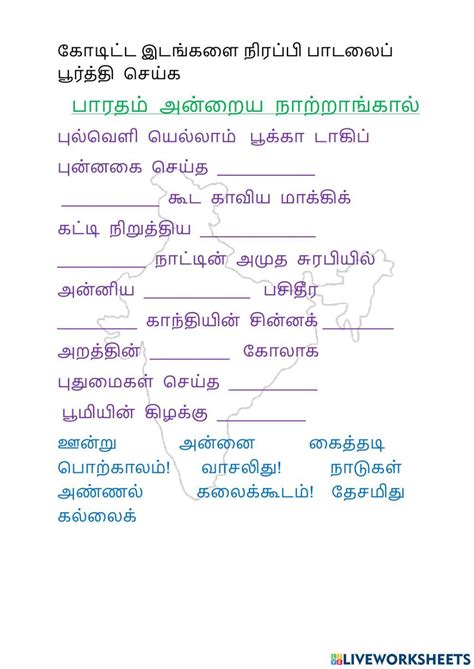 கோடிட்ட இடங்களை நிரப்பி பாடலைப்
பூர்த்தி செய்க
பாரதம் அன்றைய நாற்றாங்கால்
புல்வெளி யெல்லாம் பூக்கா டாகிப்
புன்னகை செய்த __________
__________ கூட காவிய மாக்கிக்
கட்டி நிறுத்திய ____________
_________ நாட்டின் அமுத சுரபியில்
அன்னிய ___________ பசிதீர
________ காந்தியின் சின்னக் _______
அறத்தின் ________ கோலாக
புதுமைகள் செய்த _________
பூமியின் கிழக்கு _________
ஊன்று அன்னை கைத்தடி
பொற்காலம்! வாசலிது! நாடுகள்
அண்ணல் கலைக்கூடம்! தேசமிது
கல்லைக்
LIVEWORKSHEETS